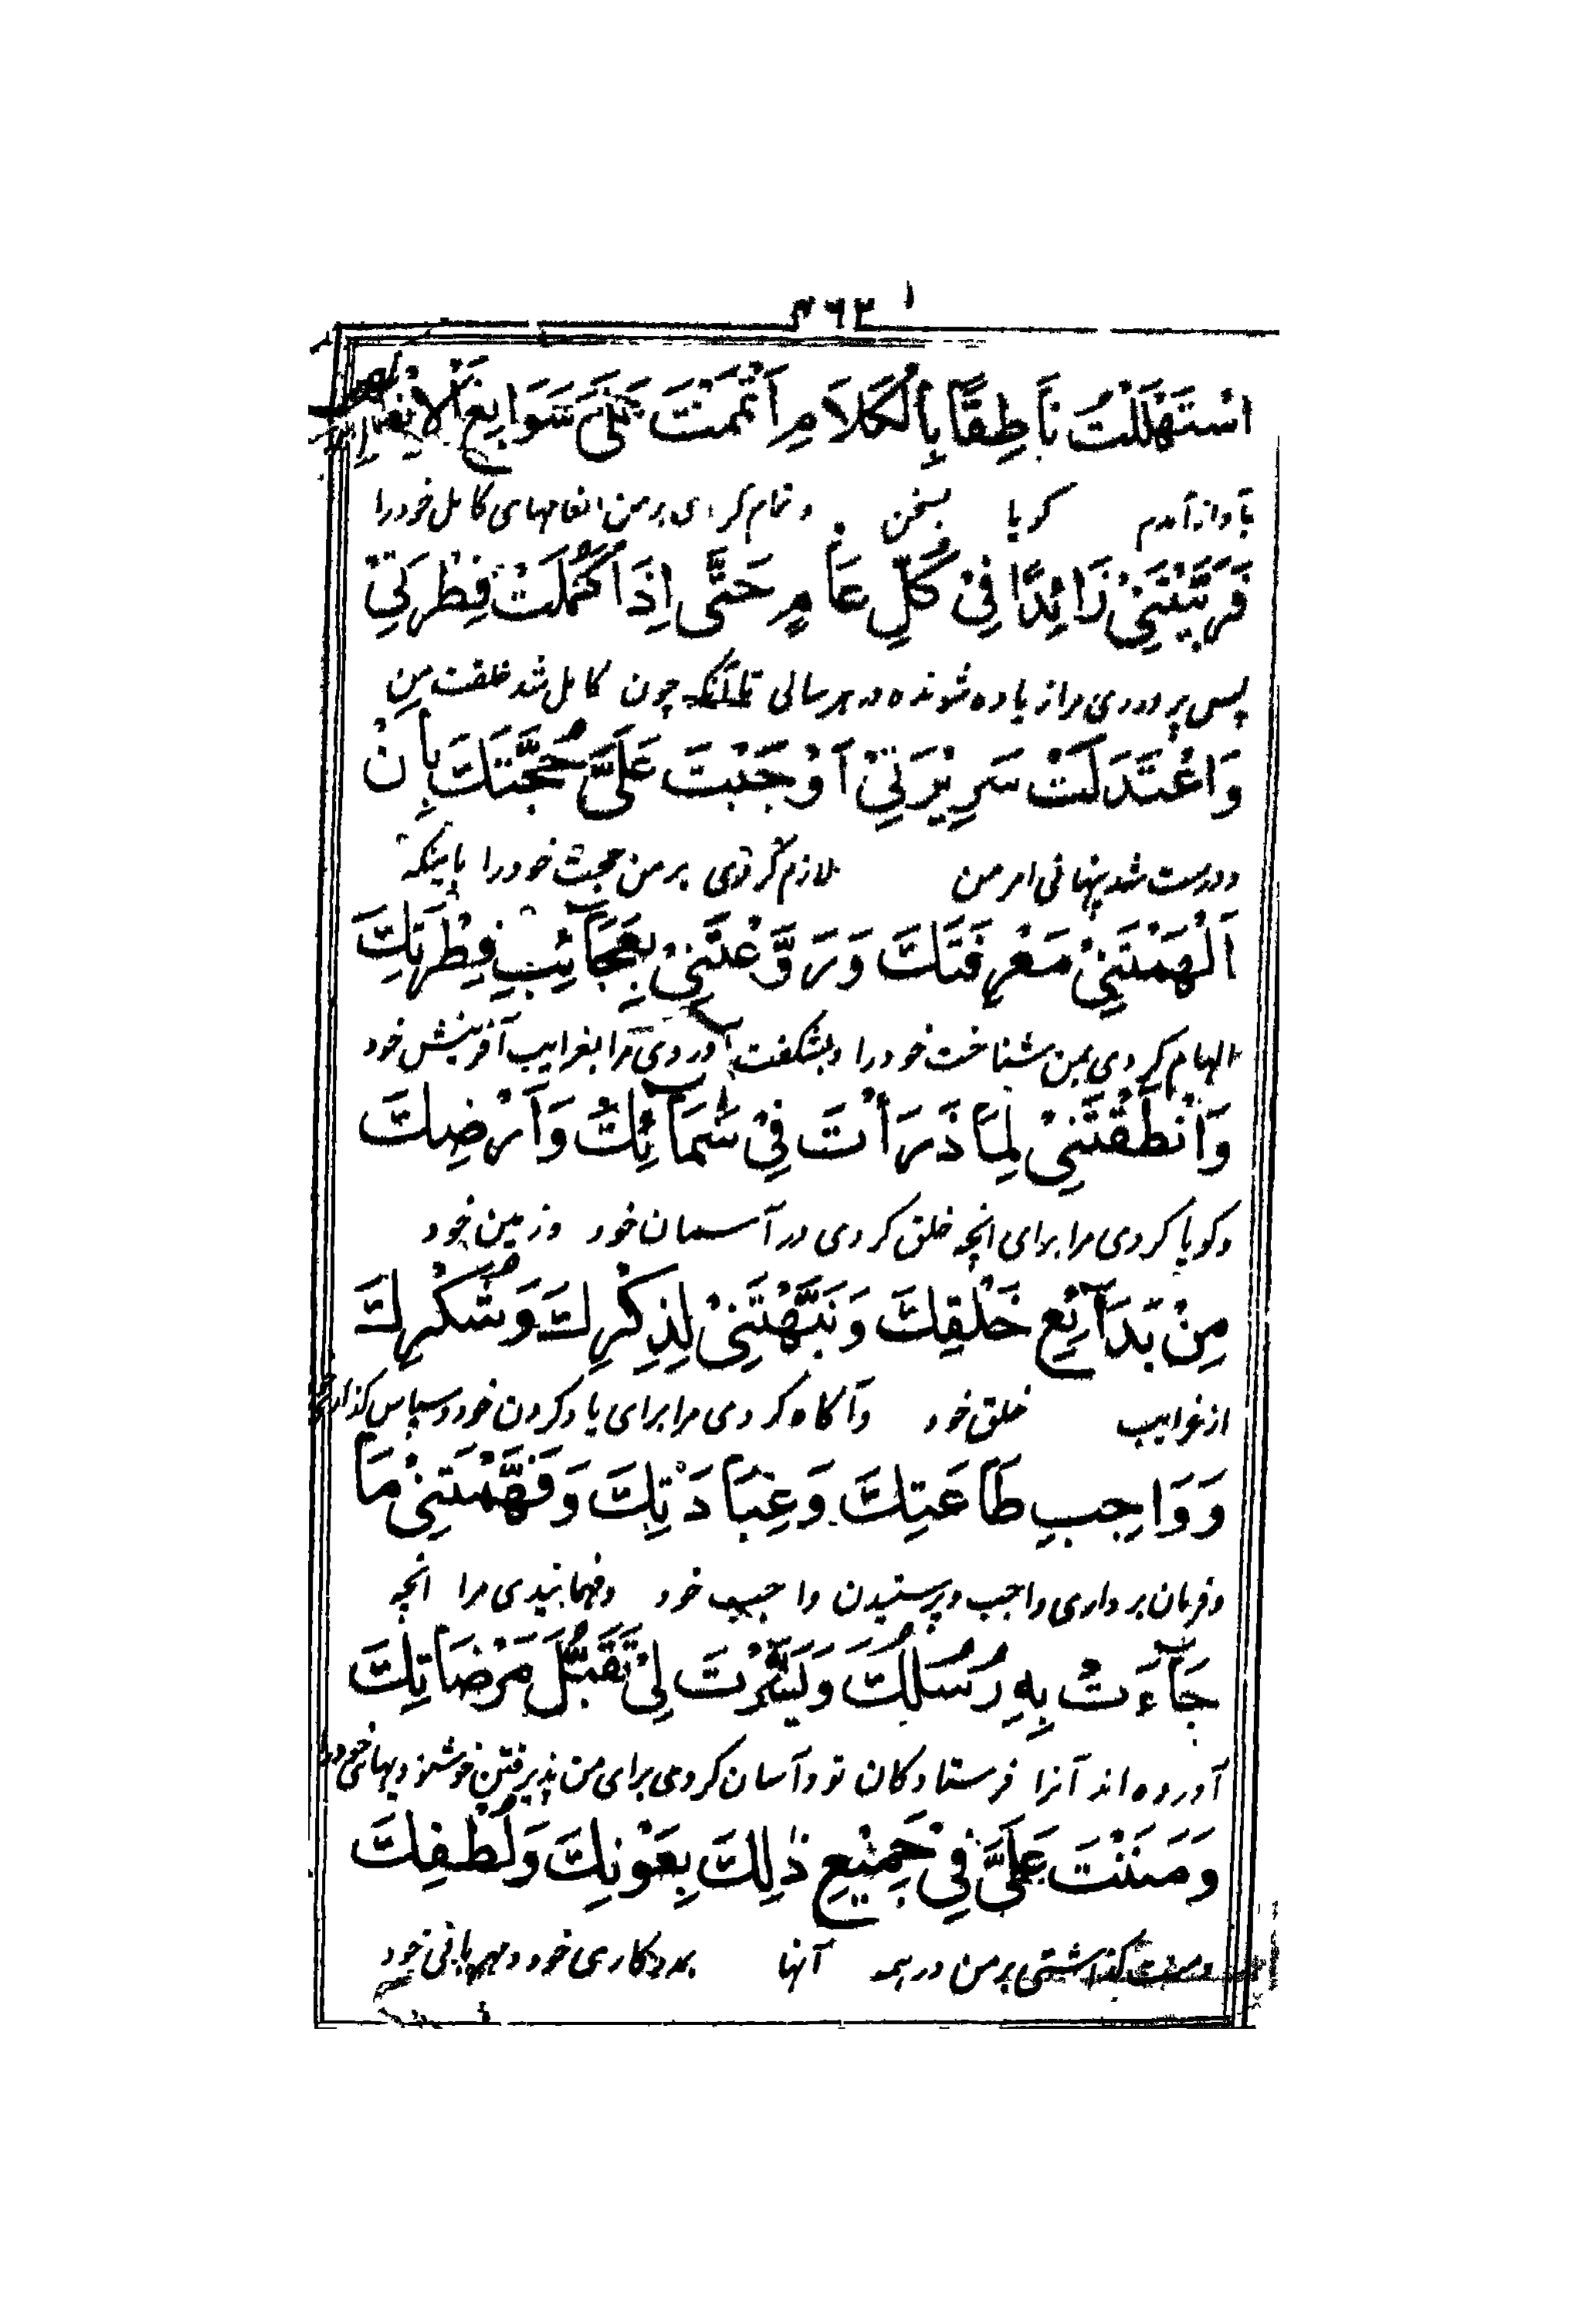 ۳۶۳
اسْتَهْلَلْتُ نَاطِقًا بِالْكَلَامِ اَتْمَمْتَ عَلَيَّ سَوَابِغَ الْاِنْعَامِ
بآواز آمدم گویا بسخن و تمام کردی بر من انعامهای کامل خود را
فَرَبَّيْتَنِيْ زَائِدًا فِيْ كُلِّ عَامٍ حَتّٰى اِذَا كَمُلَتْ فِطْرَتِيْ
پس پروردی مرا زیاده شونده در هر سالی تا آنکه چون کامل شد خلقت من
وَاعْتَدَلَتْ سَرِيْرَتِيْ اَوْجَبْتَ عَلَيَّ حُجَّتَكَ بِاَنْ
و درست شد پنهانی امر من لازم کردی بر من حجت خود را باینکه
اَلْهَمْتَنِيْ مَعْرِفَتَكَ وَرَوَّعْتَنِيْ بِعَجَآئِبِ فِطْرَتِكَ
الهام کردی بمن شناخت خود را و بشگفت آوردی مرا بغرایب آفرینش خود
وَاَنْطَقْتَنِيْ لِمَا ذَرَأْتَ فِيْ سَمَآئِكَ وَاَرْضِكَ
و گویا کردی مرا برای آنچه خلق کردی در آسمان خود و زمین خود
مِنْ بَدَآئِعِ خَلْقِكَ وَنَبَّهْتَنِيْ لِذِكْرِكَ وَشُكْرِكَ
از غرایب خلق خود و آگاه کردی مرا برای یاد کردن خود و سپاس
وَوَاجِبِ طَاعَتِكَ وَعِبَادَتِكَ وَفَهَّمْتَنِيْ مَا
و فرمان برداری واجب و پرستیدن واجب خود و فهمانیدی مرا آنچه
جَآءَتْ بِهِ رُسُلُكَ وَيَسَّرْتَ لِيْ تَقَبُّلَ مَرْضَاتِكَ
آورده اند آنرا فرستادگان تو و آسان کردی برای من پذیرفتن خوشنودیهای خود
وَمَنَنْتَ عَلَيَّ فِيْ جَمِيْعِ ذٰلِكَ بِعَوْنِكَ وَلُطْفِكَ
و منت گذاشتی بر من در همه آنها بمددکاری خود و مهربانی خود